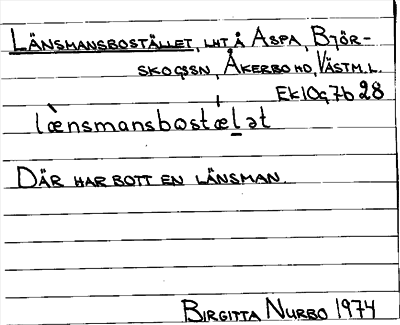 LÄNSMANSBOSTÄLLET, LHT Å ASPA, BJÖR-
SKOGSSN, ÅKERBO HD, VÄSTM. L.
EK 10g7b 28
lænsmansbostælət
DÄR HAR BOTT EN LÄNSMAN.
BIRGITTA NURBO 1974